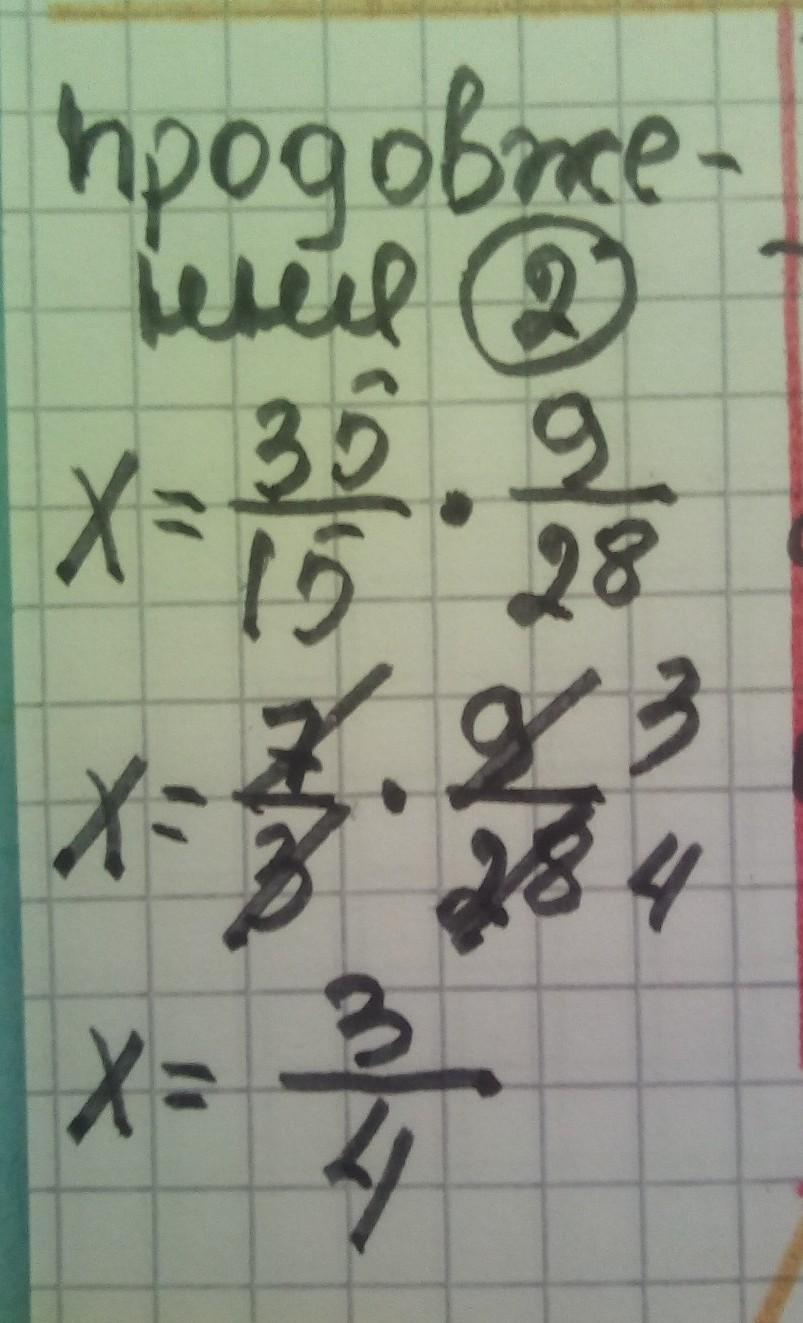 продовже-
ния 2
X = 35/15 · 9/28
X = 7/3 · 9/28 3 4
X = 3/4